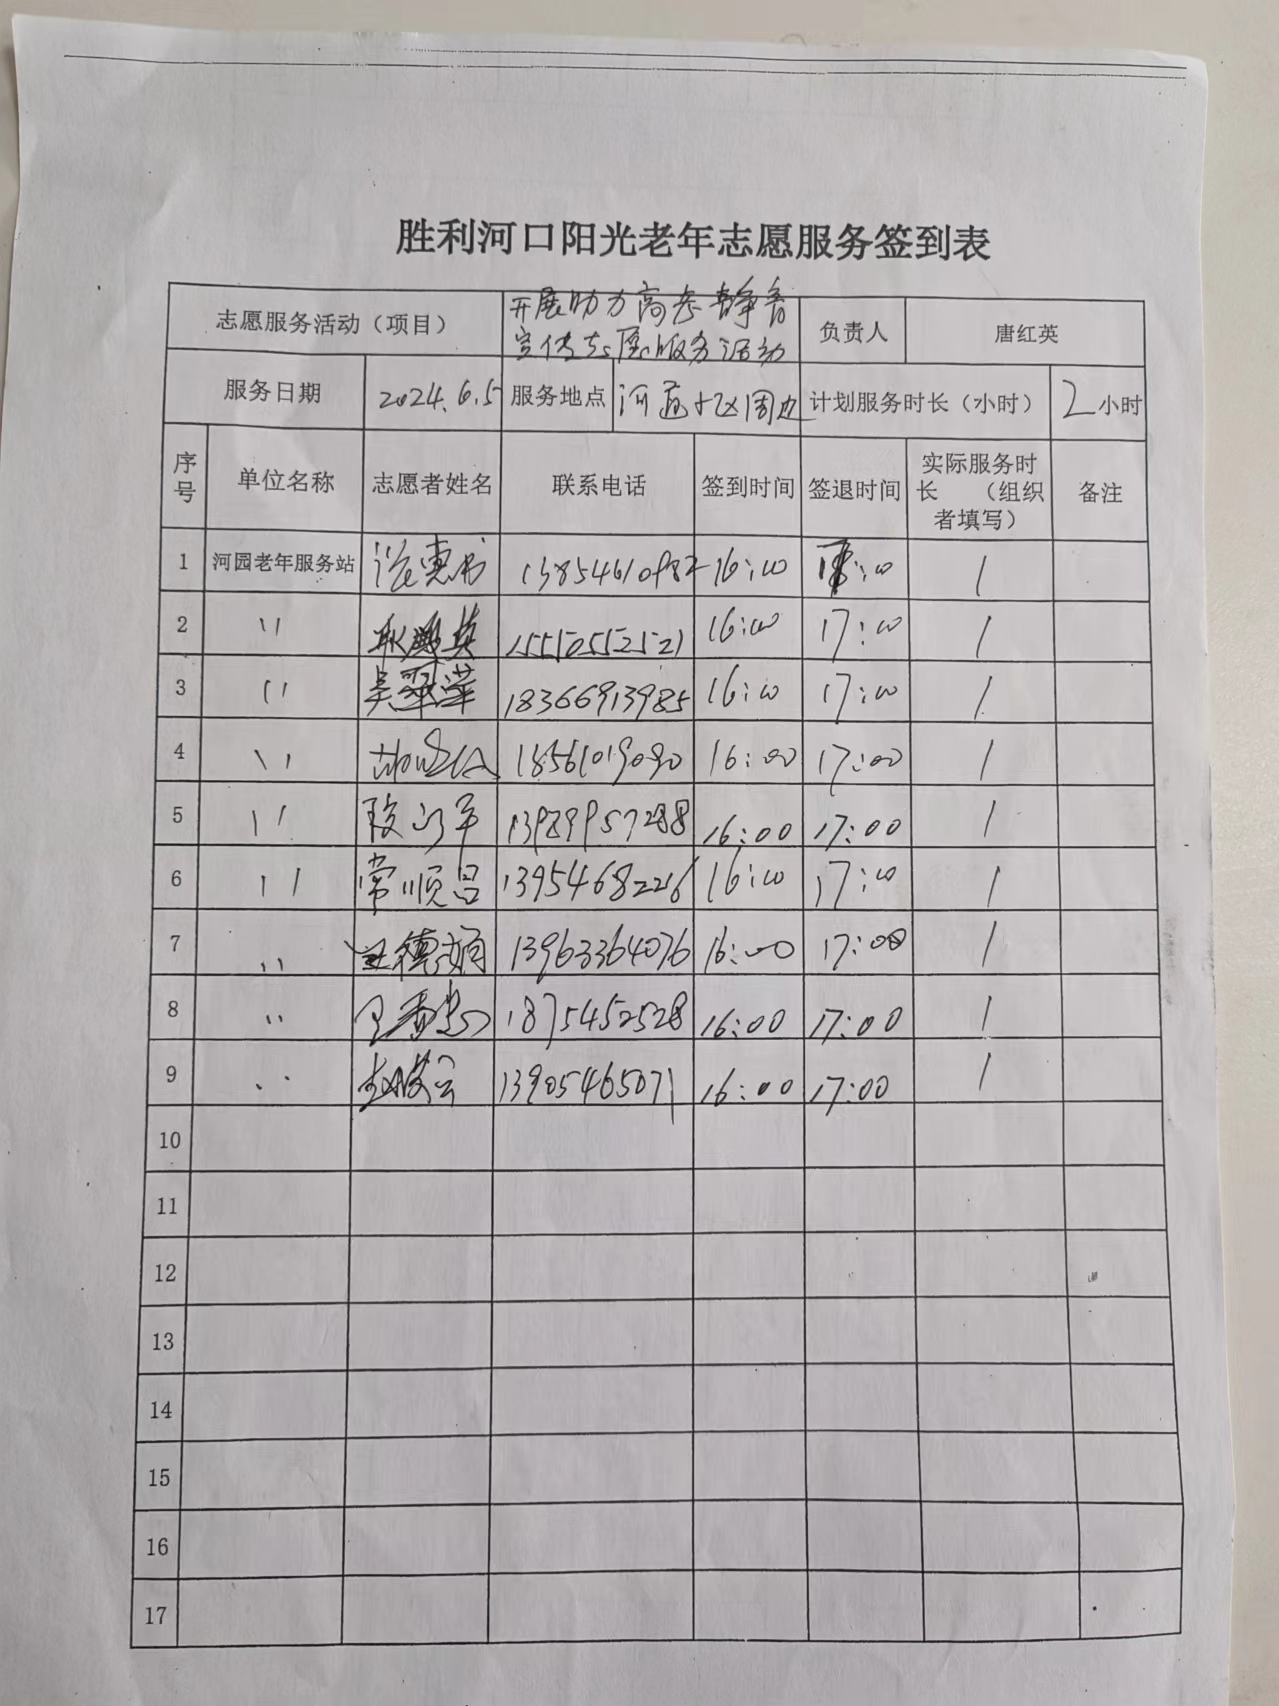 胜利河口阳光老年志愿服务签到表
志愿服务活动（项目） 开展助力高考静音 负责人 唐红英
宣传志愿服务活动
服务日期 2024.6.5 服务地点 河 周边 计划服务时长（小时） 2小时
序号 单位名称 志愿者姓名 联系电话 签到时间 签退时间 实际服务时长（组织者填写） 备注
1 河园老年服务站 惠 16:00 1
2 〃 英 15510552521 16:00 17:00 1
3 〃 吴翠萍 18366913985 16:00 17:00 1
4 〃 18561019090 16:00 17:00 1
5 〃 平 16:00 17:00 1
6 〃 常顺昌 13954682216 16:00 17:00 1
7 〃 王德娟 13963364076 16:00 17:00 1
8 〃 王 1875452528 16:00 17:00 1
9 〃 13905465071 16:00 17:00 1
10
11
12
13
14
15
16
17